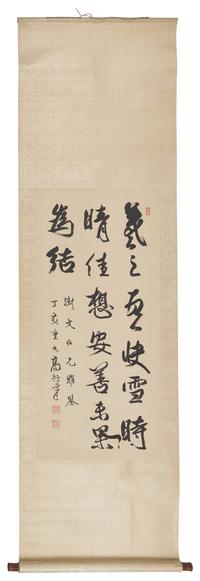 羲之頓首快雪時
晴佳想安善未果
為結
文仁兄雅鑒
丁亥重九高